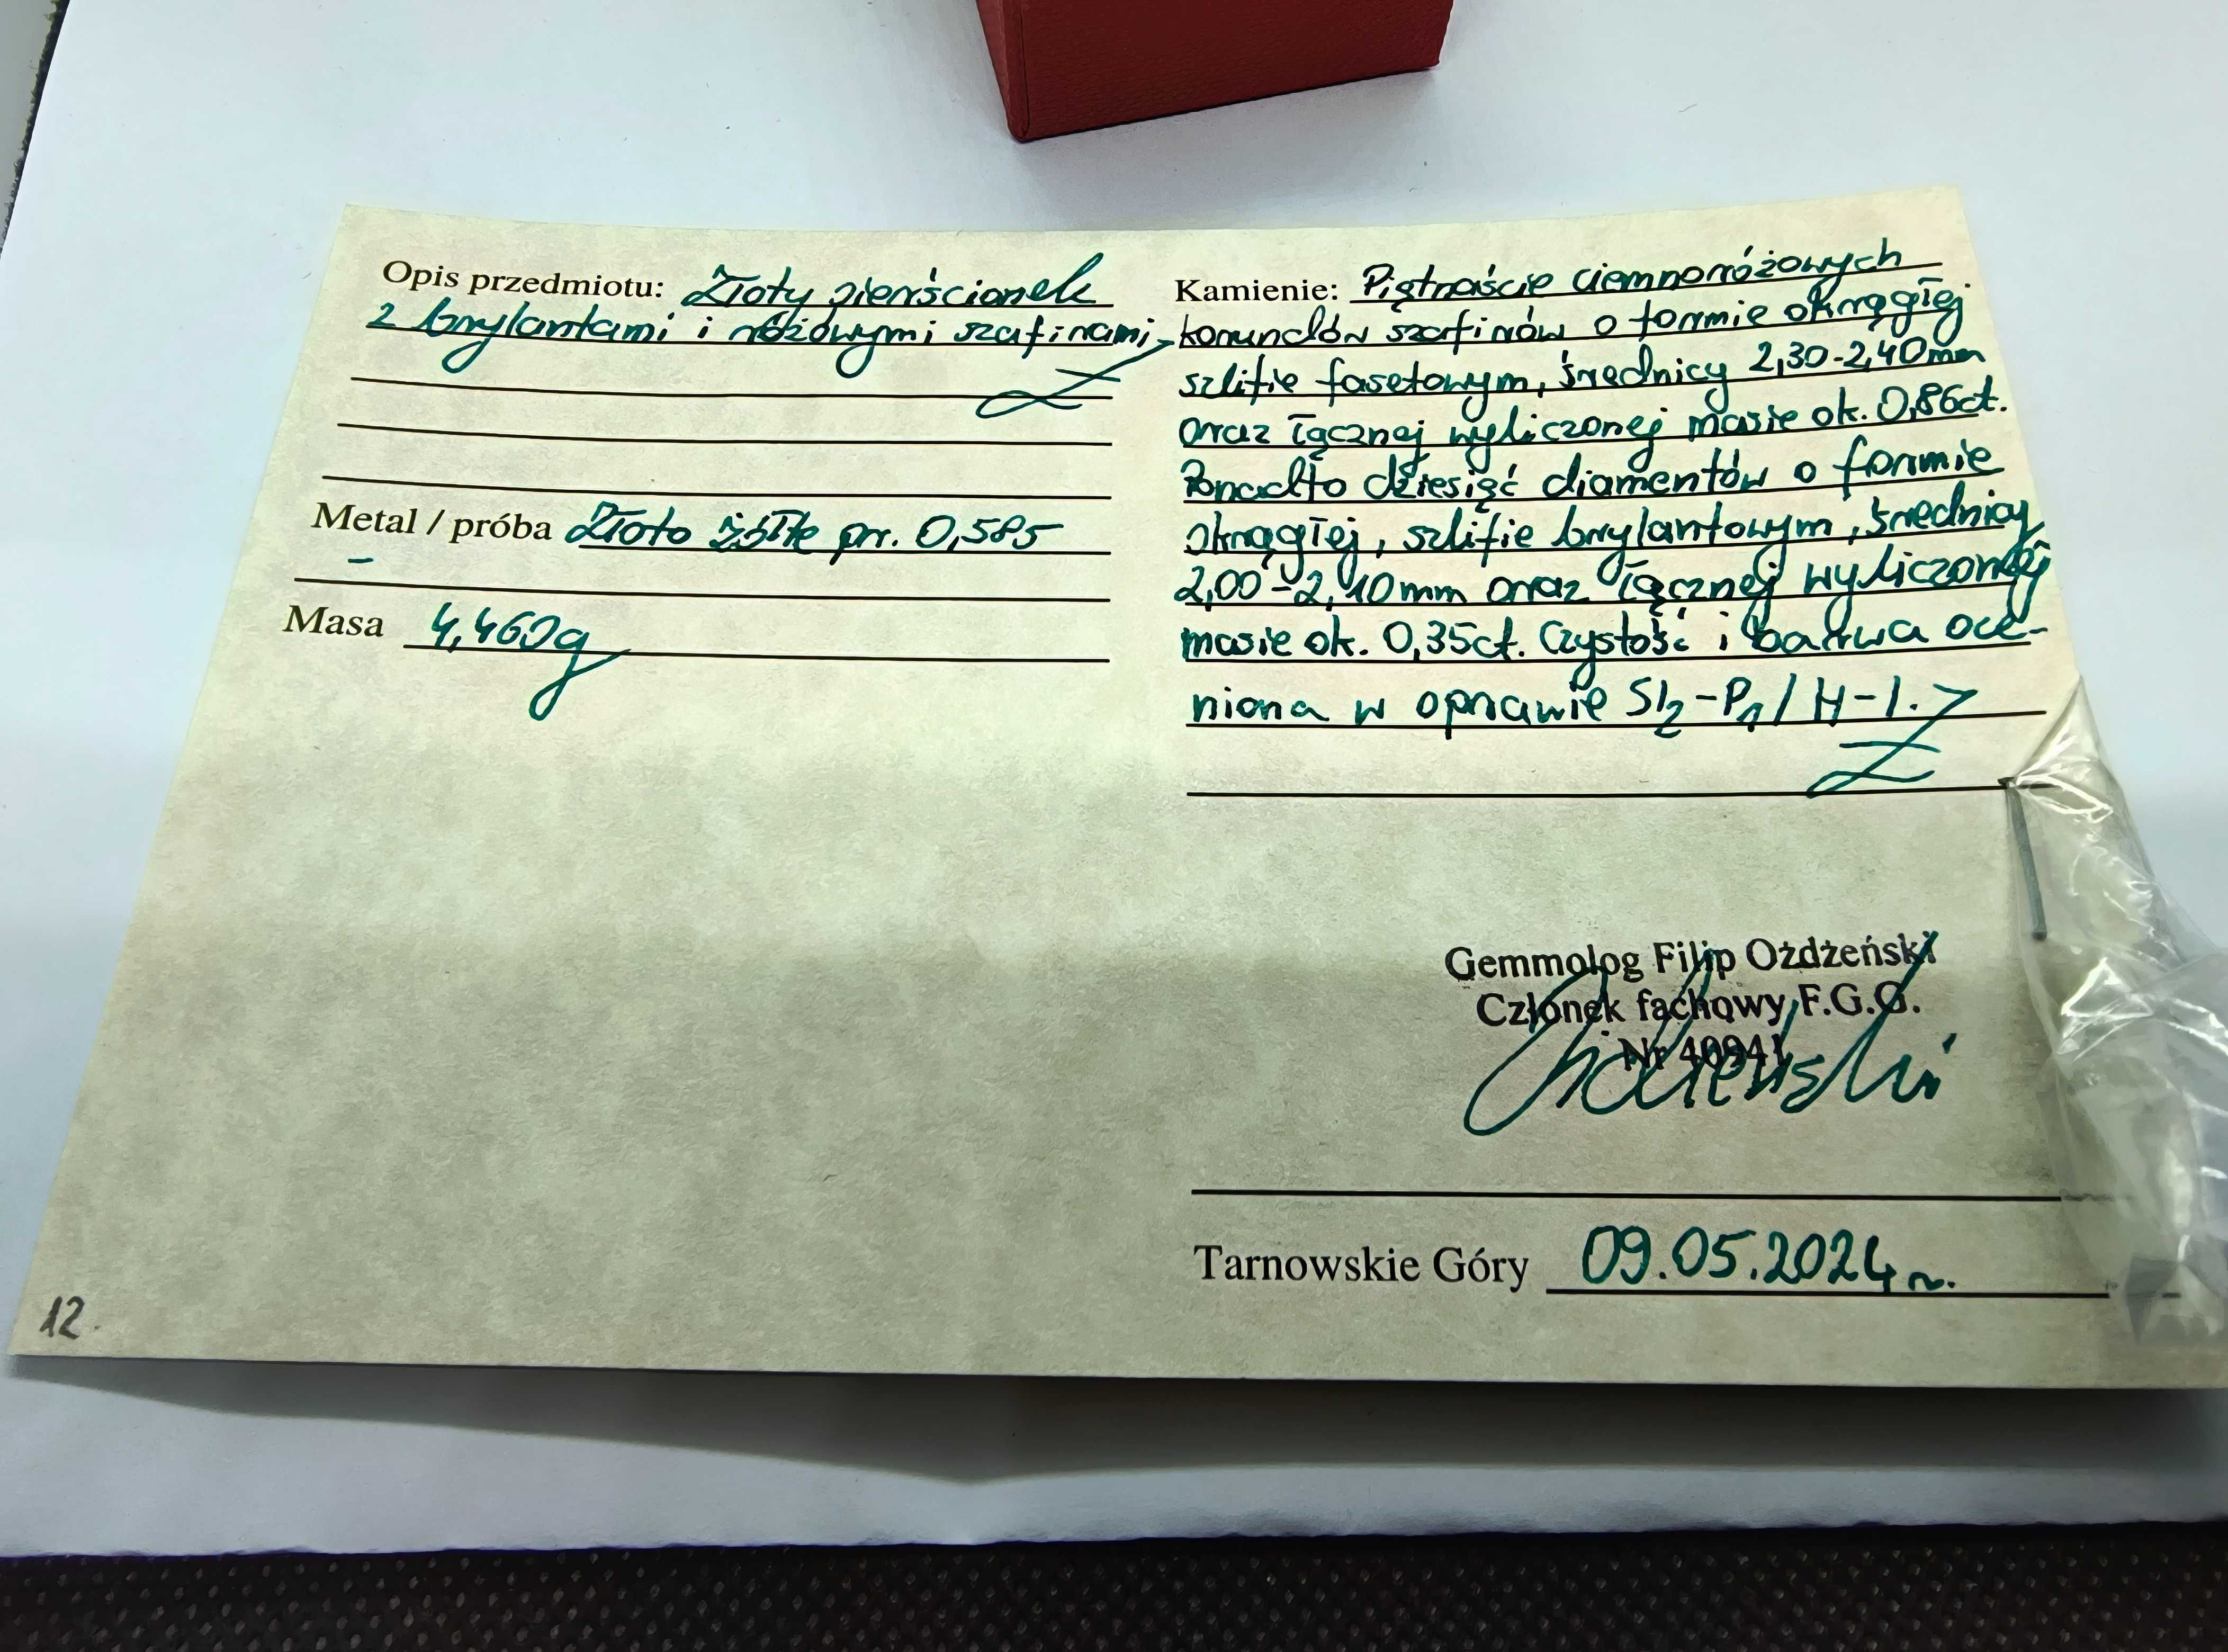 Opis przedmiotu: Złoty pierścionek
z brylantami i różowymi szafirami,
Metal / próba Złoto żółte pr. 0,585
-
Masa 4,460g
Kamienie: Piętnaście ciemnoróżowych
korundów szafirów o formie okrągłej
szlifie fasetowym, średnicy 2,30-2,40mm
oraz łącznej wyliczonej masie ok. 0,86ct.
Ponadto dziesięć diamentów o formie
okrągłej, szlifie brylantowym, średnicy
2,00-2,10mm oraz łącznej wyliczonej
masie ok. 0,35ct. Czystość i barwa oce-
niona w oprawie SI2-P1/H-I.
Gemmolog Filip Ożdżeński
Członek fachowy F.G.G.
Nr 40941
Tarnowskie Góry 09.05.2024r.
12.